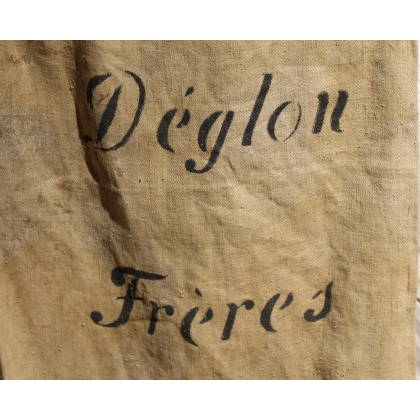 Déglon
Frères